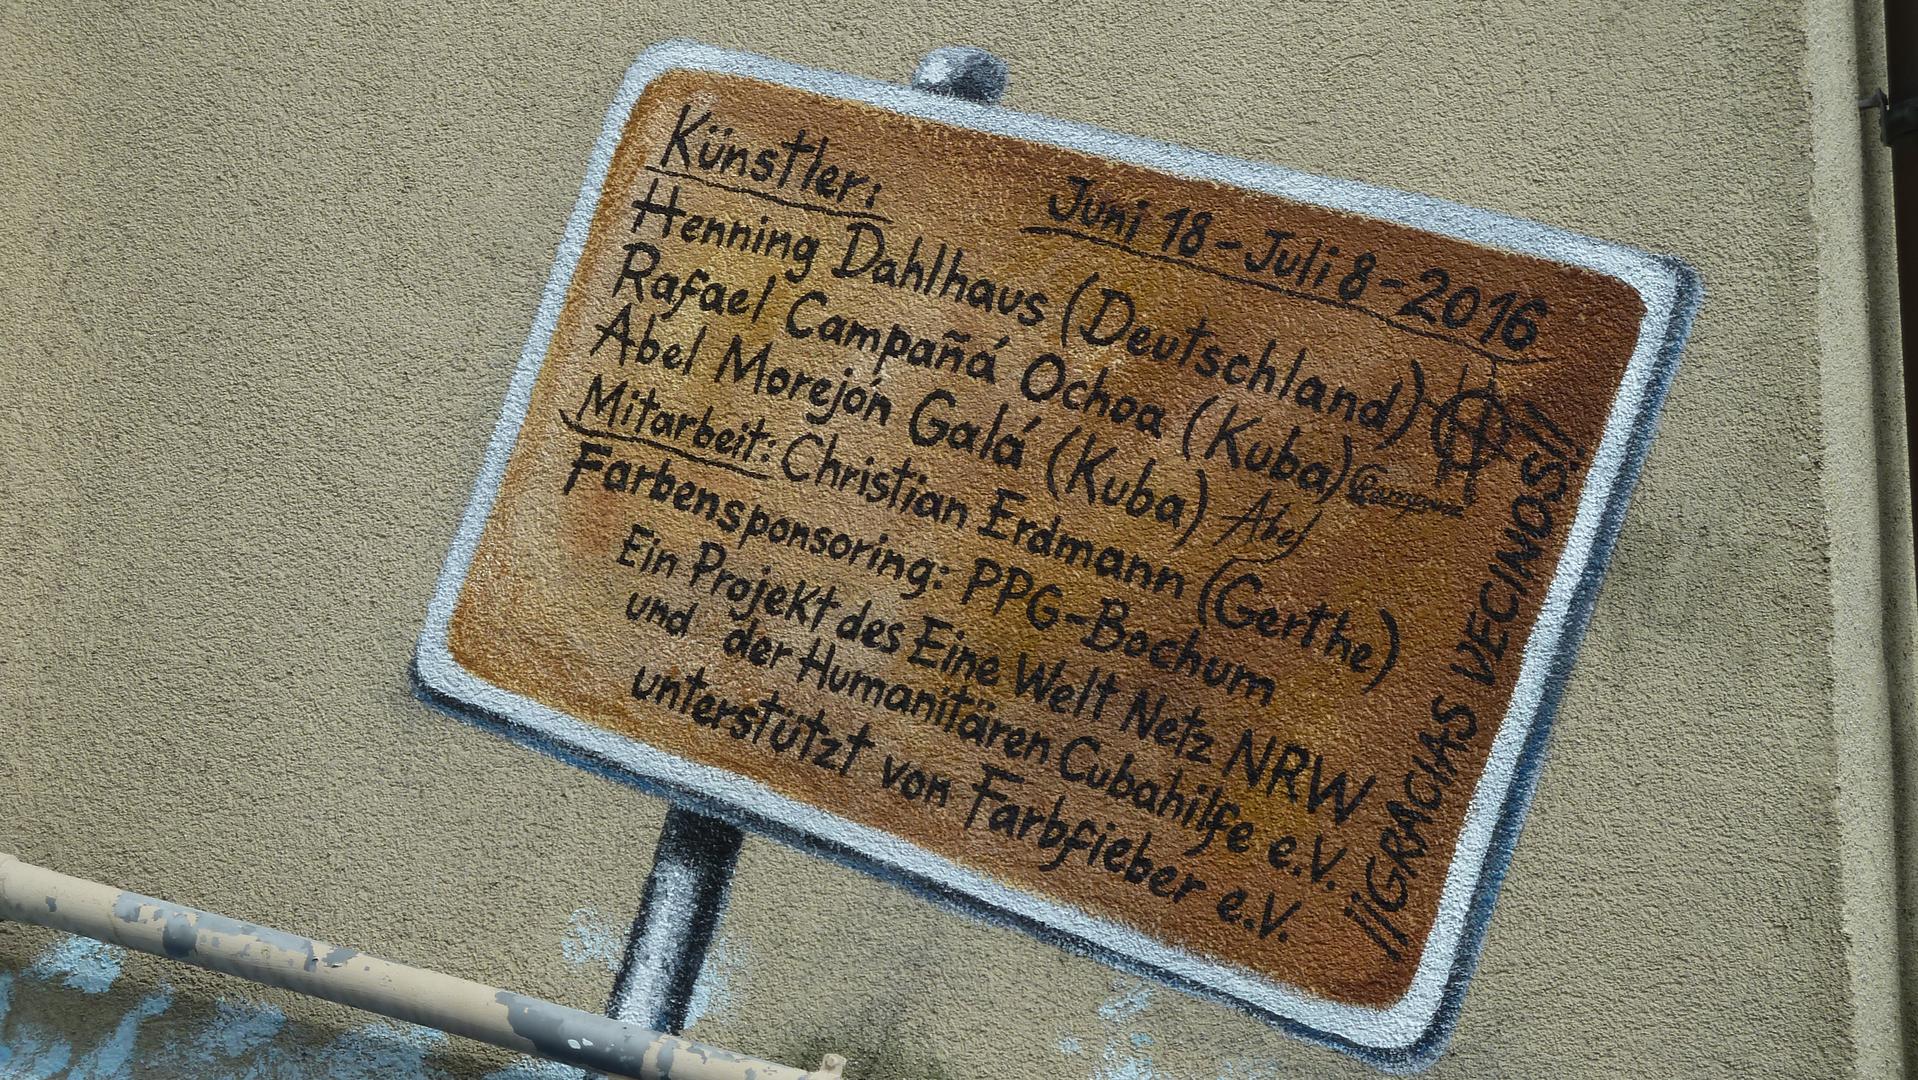 Künstler:
Juni 18-Juli 8-2016
Henning Dahlhaus (Deutschland)
Rafael Campañá Ochoa (Kuba)
Abel Morejón Galá (Kuba) Abel
Mitarbeit: Christian Erdmann (Gerthe)
Farbensponsoring: PPG-Bochum
Ein Projekt des Eine Welt Netz NRW
und der Humanitären Cubahilfe e.V.
unterstützt von Farbfieber e.V.
¡¡GRACIAS VECINOS!!